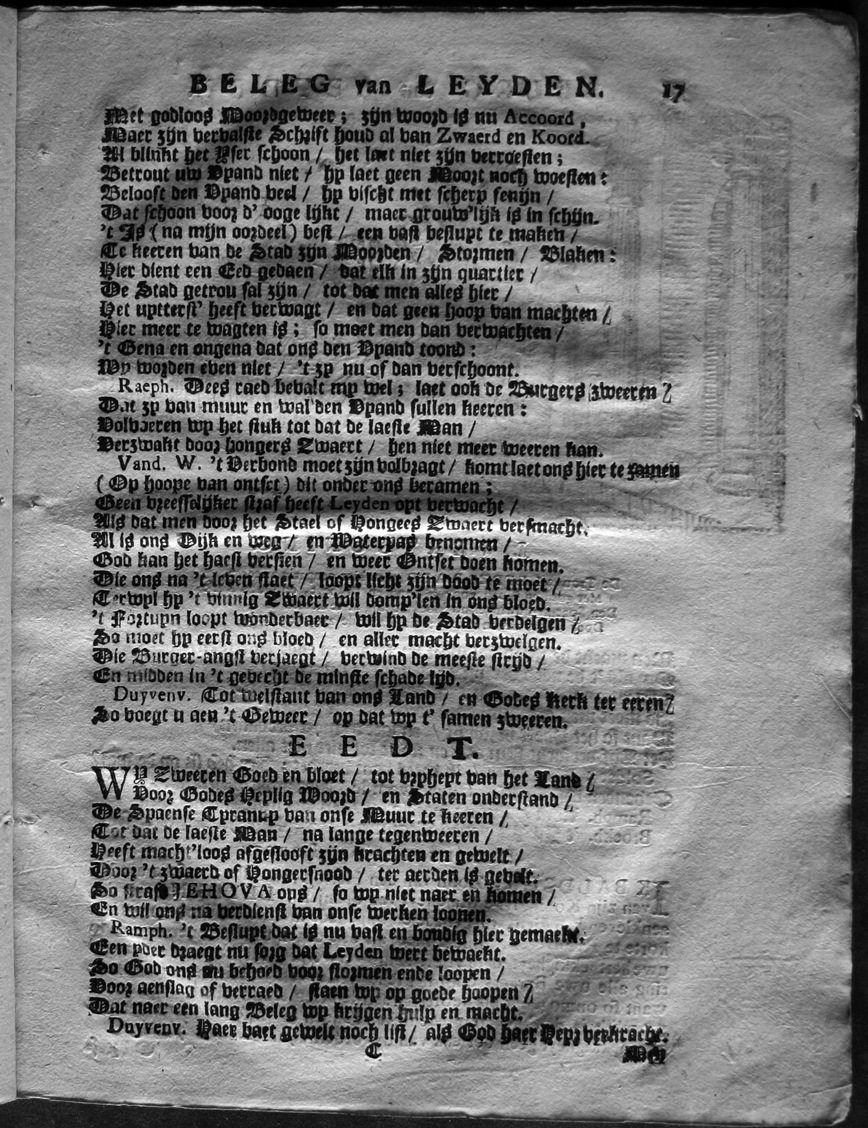 BELEG van LEYDEN. 17
Met godloos Moordgeweer; zijn woord is nu Accoord,
Maer zijn vervalste Schrift houd al van Zwaerd en Koord.
Al blinkt het Yser schoon / het laet niet zijn verroesten;
Betrout uw Vyand niet / hy laet geen Moort noch woesten:
Belooft den Vyand veel / hy vischt met scherp fenijn /
Dat schoon voor d' ooge lijkt / maer grouw'lijk is in schijn.
't Is (na mijn oordeel) best / een vast besluyt te maken /
Te keeren van de Stad zijn Moorden / Stormen / Blaken:
Hier dient een Eed gedaen / dat elk in zijn quartier /
De Stad getrou sal zijn / tot dat men alles hier /
Het uytterst' heeft verwagt / en dat geen hoop van machten /
Hier meer te wagten is; so moet men dan verwachten /
't Gena en ongena dat ons den Vyand toond:
Wy worden even niet / 't zy nu of dan verschoont.
Raeph. Dees raed bevalt my wel; laet ook de Burgers zweeren /
Dat zy van muur en wal den Vyand sullen keeren:
Volvoeren wy het stuk tot dat de laeste Man /
Verzwakt door hongers Zwaert / hen niet meer weeren kan.
Vand. W. 't Verbond moet zijn volbragt / komt laet ons hier te samen
(Op hoope van ontset) dit onder ons beramen;
Geen vreesselijker straf heeft Leyden oyt verwacht /
Als dat men door het Stael of Hongers Zwaert versmacht.
Al is ons Dijk en weg / en Waterpas benomen /
God kan het haest versien / en weer Ontset doen komen.
Die ons na 't leven staet / loopt licht zijn dood te moet /
Terwyl hy 't vinnig Zwaert wil domp'len in ons bloed.
't Fortuyn loopt wonderbaer / wil hy de Stad verdelgen /
So moet hy eerst ons bloed / en aller macht verzwelgen.
Die Burger-angst verjaegt / verwind de meeste strijd /
En midden in 't gevecht de minste schade lijd.
Duyvenv. Tot welstant van ons Land / en Godes Kerk ter eeren /
So voegt u aen 't Geweer / op dat wy t' samen zweeren.
EEDT.
WY Zweeren Goed en bloet / tot vryheyt van het Land /
Voor Godes Heylig Woord / en Staten onderstand /
De Spaense Tyranny van onse Muur te keeren /
Tot dat de laeste Man / na lange tegenweeren /
Heeft macht'loos afgeslooft zijn krachten en gewelt /
Door 't zwaerd of Hongersnood / ter aerden is gevelt.
So straf JEHOVA ons / so wy niet naer en komen /
En wil ons na verdienst van onse werken loonen.
Ramph. 't Besluyt dat is nu vast en bondig hier gemaekt.
Een yder draegt nu sorg dat Leyden wert bewaekt.
So God ons nu behoed voor stormen ende loopen /
Voor aenslag of verraed / staen wy op goede hoopen /
Dat naer een lang Beleg wy krijgen hulp en macht.
Duyvenv. Haer baet gewelt noch list / als God haer Heyr verkracht.
C